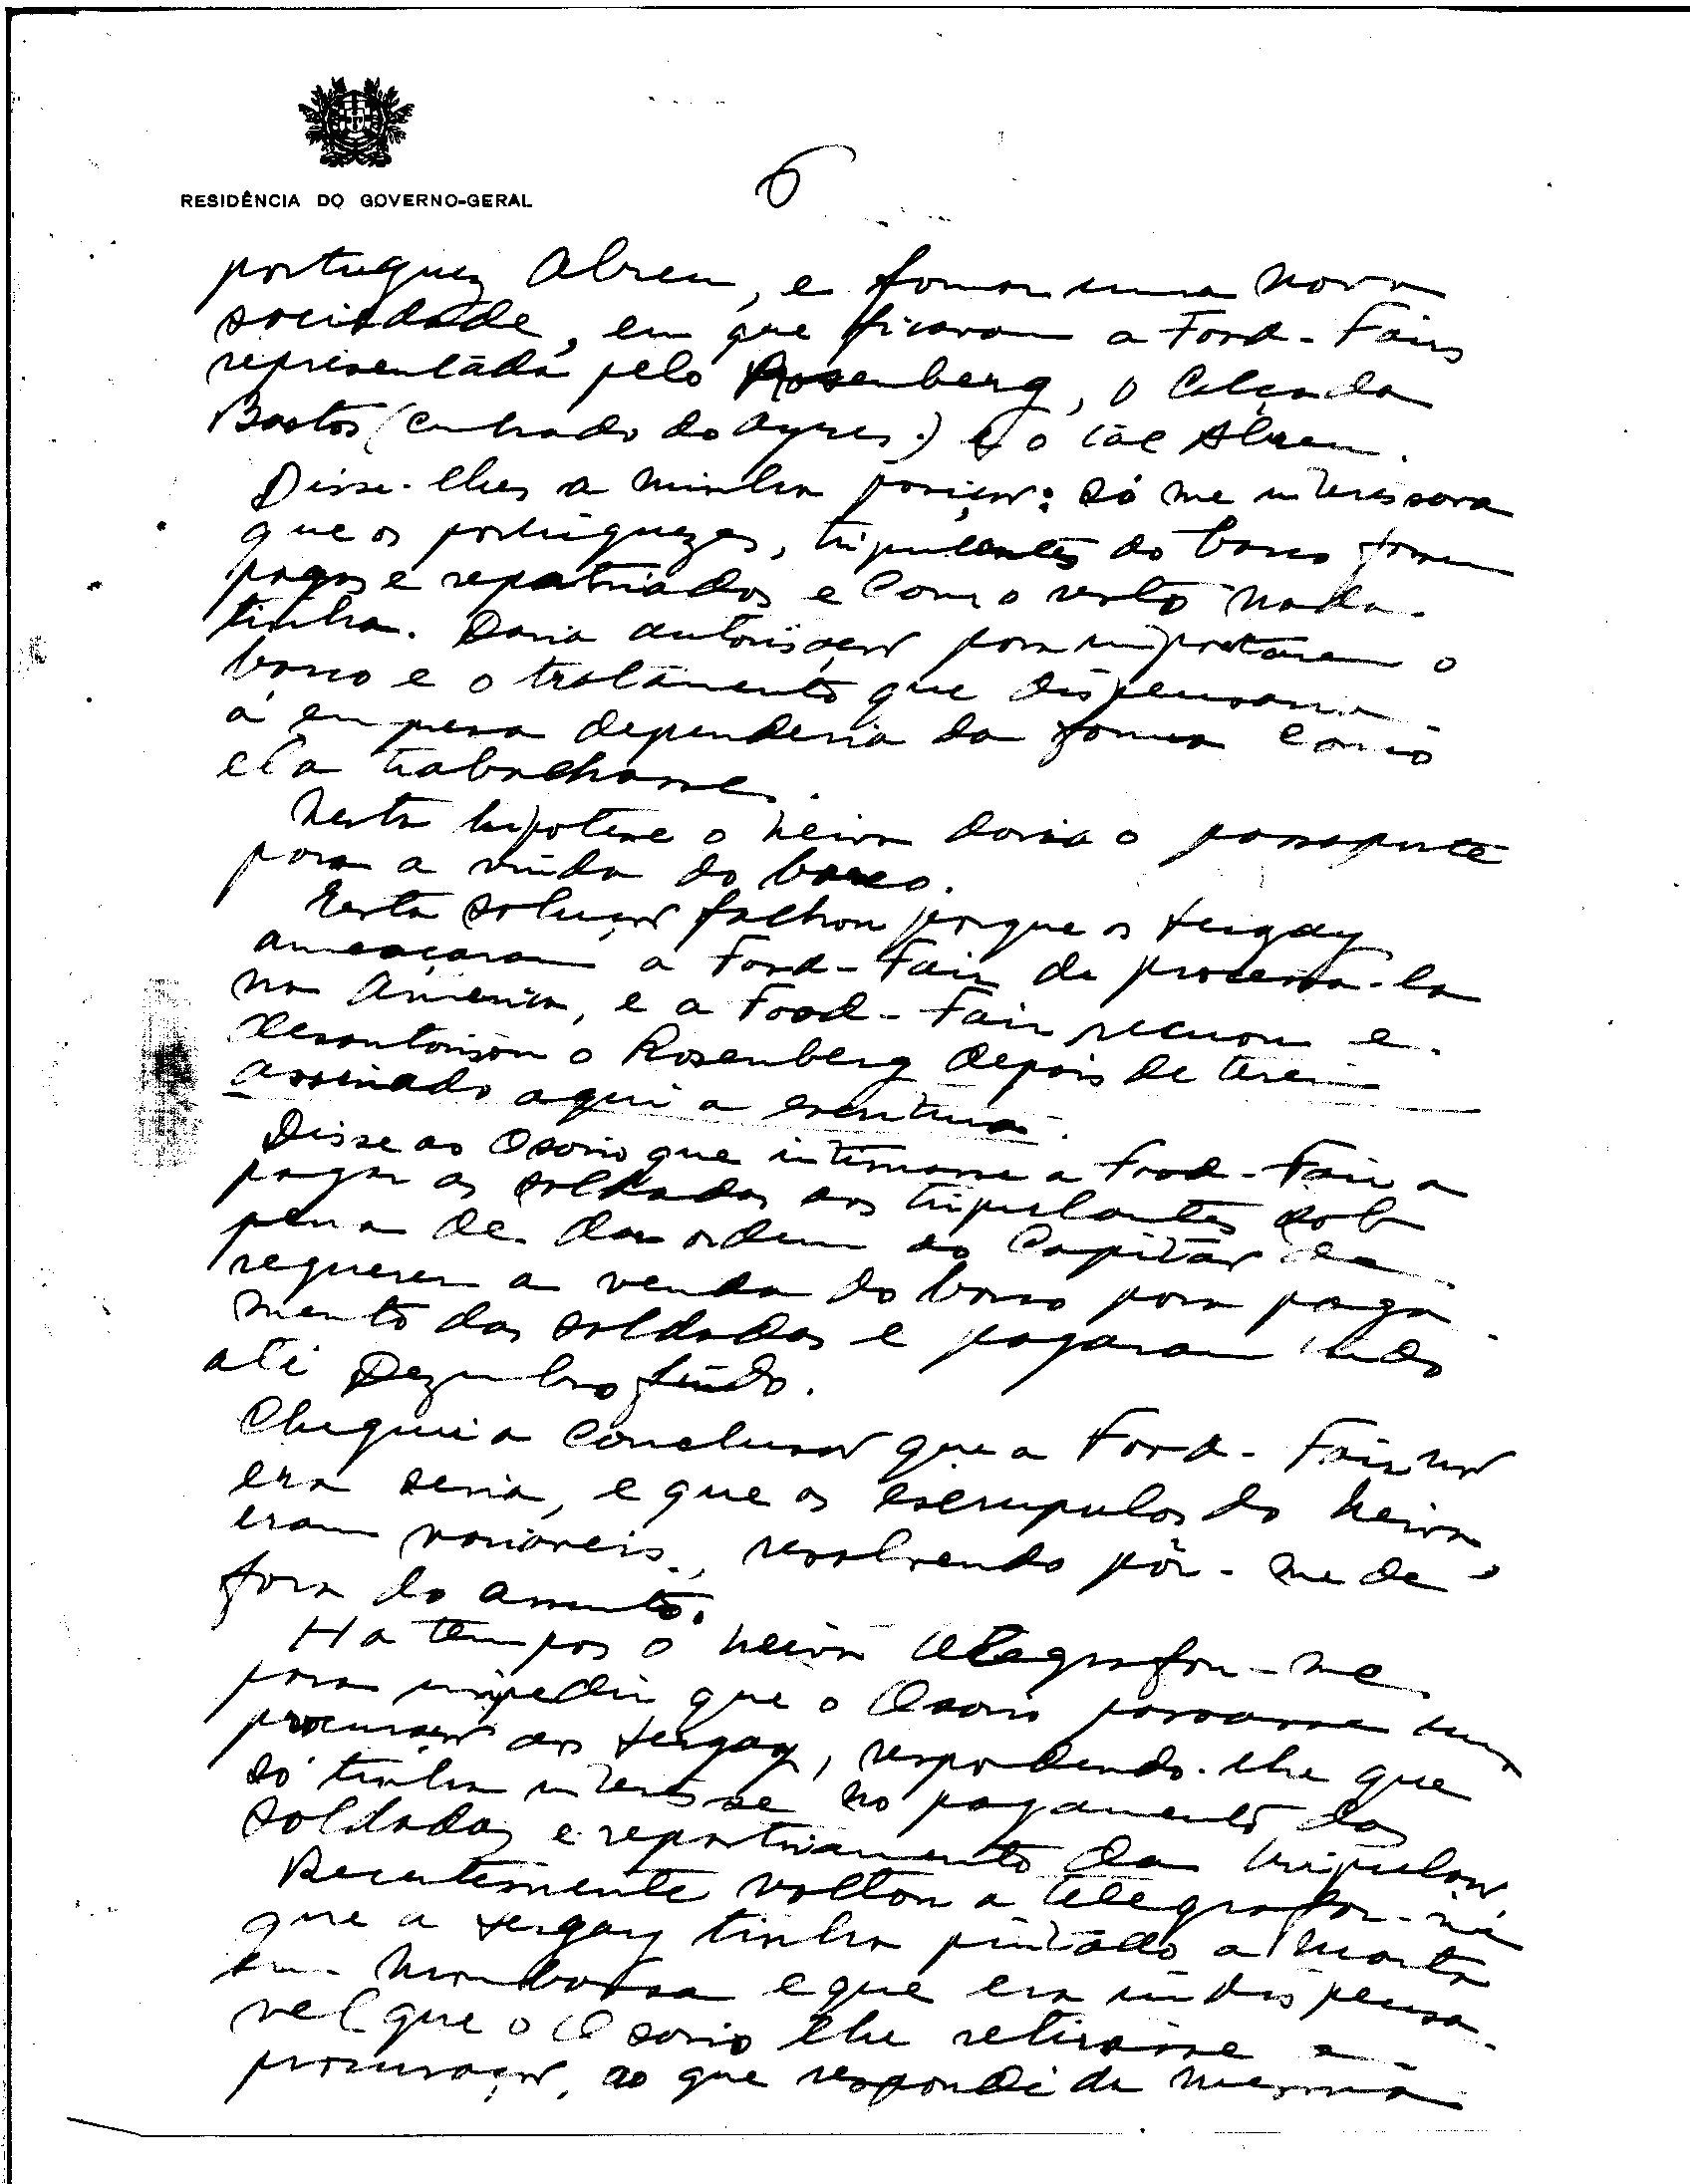 RESIDÊNCIA DO GOVERNO-GERAL
6
portuguez Abreu, e formar uma nova
sociedade, em que ficavam a Food-Fair
representada pelo Rosenberg, o Calçada
Bastos (cunhado do Ayres) e o tal Abreu.
Disse-lhes a minha posição: só me interessava
que os portuguezes, tripulantes do barco fossem
pagos e repatriados e com o resto nada
tinha. Daria autorisação para importarem o
barco e o tratamento que dispensaria
á empresa dependeria da forma como
ela trabalhasse.
Nesta hipotese o Neiva daria o passaporte
para a vinda do barco.
Esta solução falhou porque os Sergay
ameaçaram a Food-Fair de processa-la
na America, e a Food-Fair recuou e
desautorisou o Rosenberg depois de terem
assinado aqui a escritura.
Disse ao Osorio que intimasse a Food-Fair a
pagar as soldadas aos tripulantes sob
pena de dar ordem ao Capitão de
requerer a venda do barco para paga-
mento das soldadas e pagaram tudo
até Dezembro findo.
Cheguei a conclusão que a Food-Fair não
era seria, e que os escrupulos do Neiva
eram variaveis, resolvendo pôr-me de
fora do assunto.
Ha tempos o Neiva telegrafou-me
para impedir que o Osorio passasse uma
procuração aos Sergay, respondendo-lhe que
só tinha interesse no pagamento das
soldadas e repatriamento da tripulação.
Recentemente voltou a telegrafar-me
que a Sergay tinha pintado a manta
em Mombassa e que era indispensa-
vel que o Osorio lhe retirasse a
procuração, ao que respondi da mesma